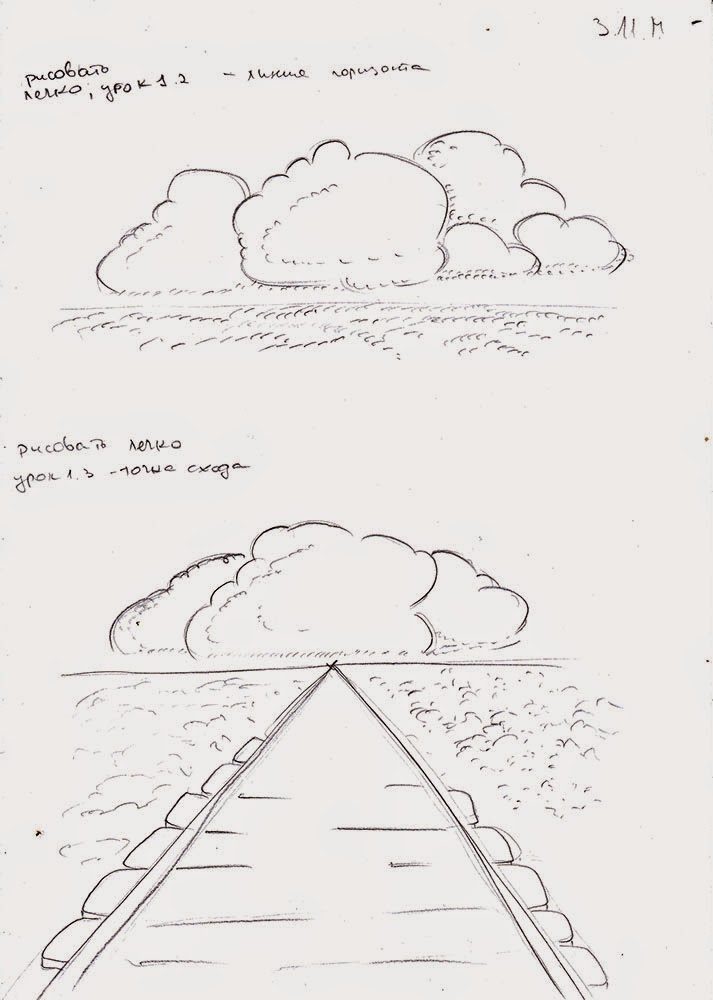 3.11.14
рисовать
легко, урок 1.2 - линия горизонта
рисовать легко
урок 1.3 - точка схода